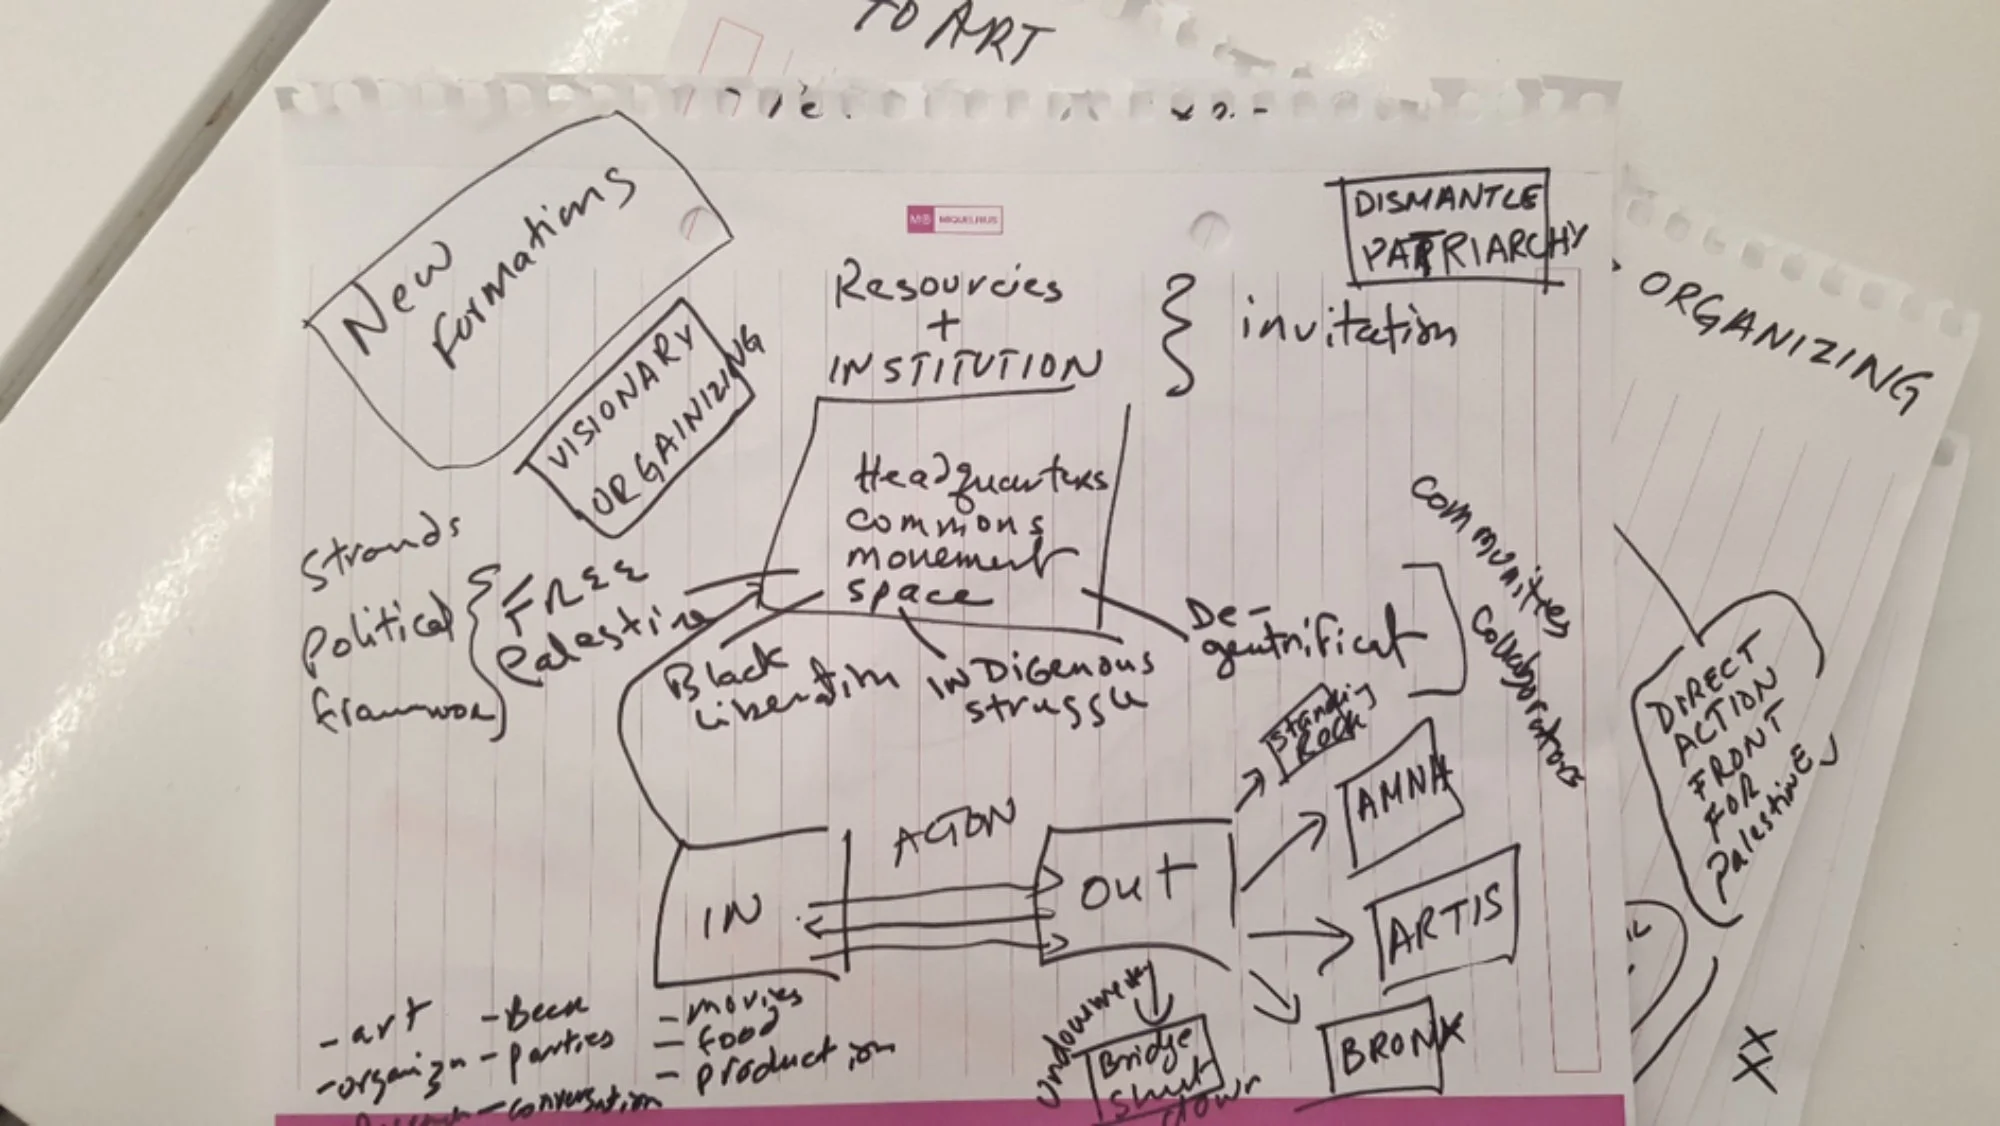 TO ART
New
formations
VISIONARY
ORGAINIZING
MIQUELRIUS
Resourcies
+
INSTITUTION
invitation
DISMANTLE
PATRIARCHY
ORGANIZING
Headquarters
commons
movement
space
Strands
political
FREE
Palestine
Black
liberation
INDIgenous
struggle
De-
gentrificat
communities
collaborators
Standing
Rock
AMNA
ARTIS
BRONX
ACTION
IN
OUT
Bridge
Shut
down
- art
- organizn
- Beer
- parties
- conversation
- movies
- food
- production
DIRECT
ACTION
FRONT
FOR
PalestinE